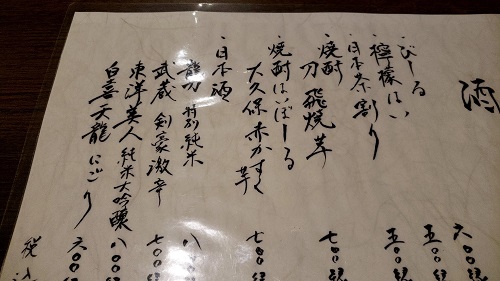 酒
・びーる 六〇〇縁
・檸檬はい 五〇〇縁
・日本茶割り 五〇〇縁
・焼酎
刀 飛焼芋 七〇〇縁
・焼酎はいぼーる
大久保 赤かすく 芋 七〇〇縁
・日本酒
龍力 特別純米 八〇〇縁
武蔵 剣豪激辛 七〇〇縁
東洋美人 純米大吟醸 八〇〇縁
白喜天龍 にごり 六〇〇縁
税込